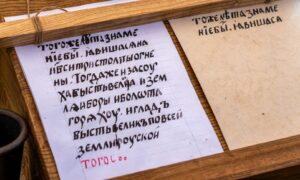 тогожелѣтазнаме
нїебы. ꙗвишасѧна
нбситристолпыогне
ны. тогдажеизасоу
хабыстьвелїаизем
лѧиборыиболота
горѧхоу. игладъ
бысть великъповсей
землироусской
того
тогожелѣтазнаме
нїебы. ꙗвишаса